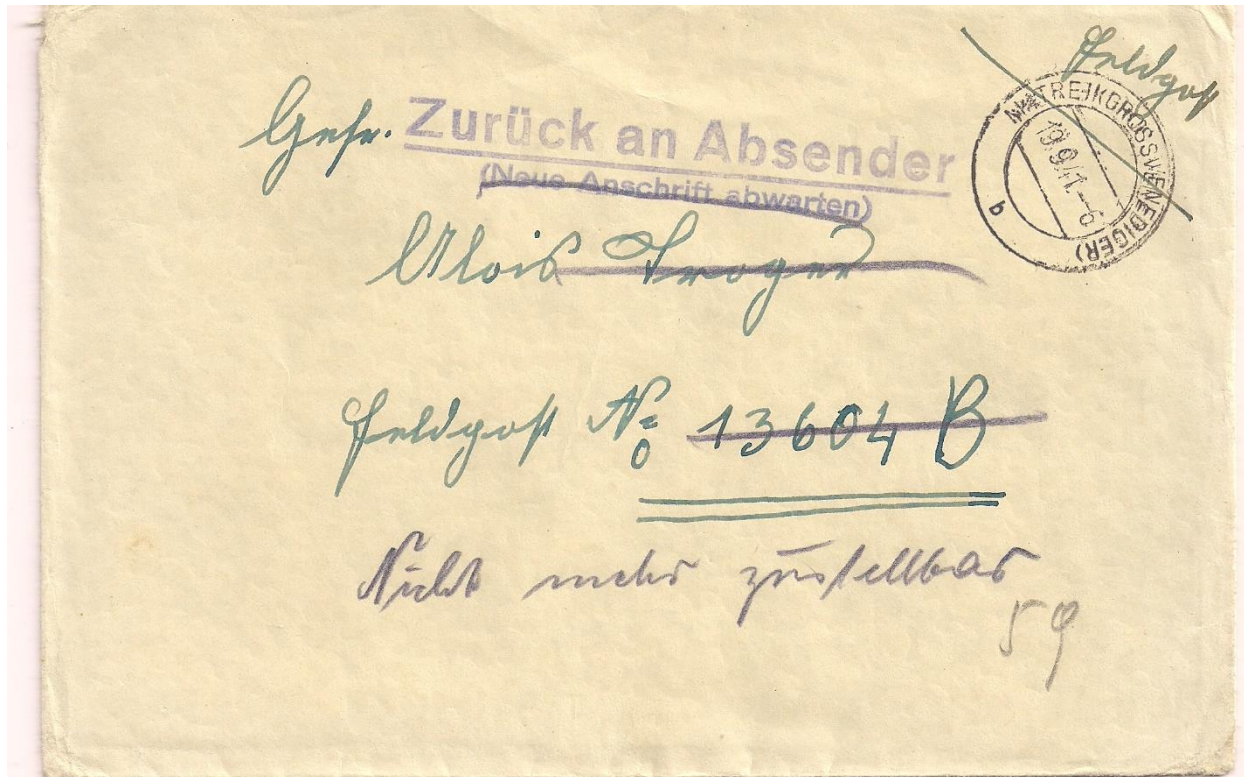 Feldpost
MATREI (GROSSVENEDIGER)
19.9.41.-6
b
Gefr.
Zurück an Absender
(Neue Anschrift abwarten)
Alois Troger
Feldpost No 13604 B
Nicht mehr zustellbar
59